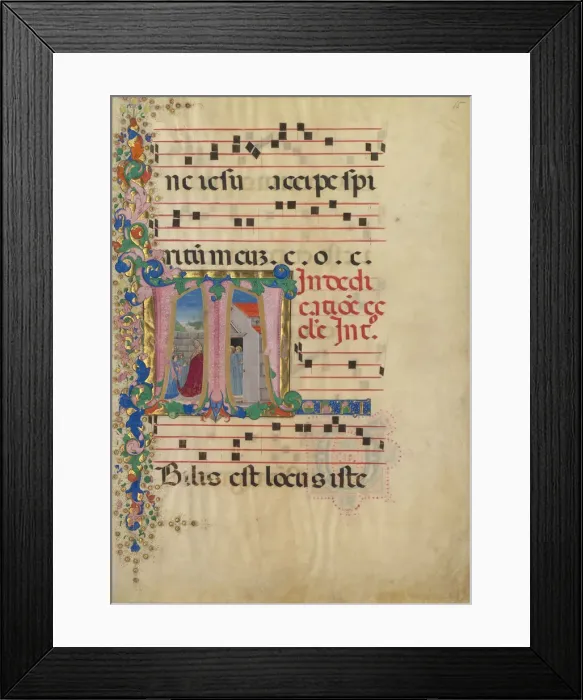 ne iesu accipe spi
ritũ meuz. c. o. c.
In dedi
catiõe ec
cl'e Int°.
T
Bilis est locus iste